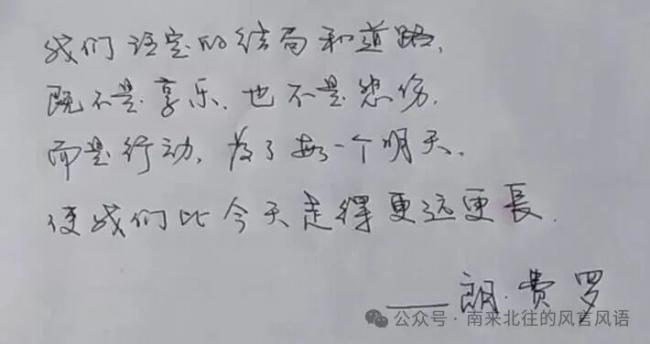 我们注定的结局和道路,
既不是享乐、也不是悲伤,
而是行动,为了每一个明天、
使我们比今天走得更远更長.
——朗·费罗
公众号·南来北往的风言风语